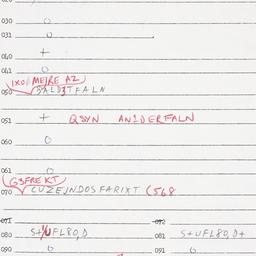 030 O
031 O
040 +
041 O
1X0 MEJRE AZ
050 BALDTFALN
051 + QSYN AN1DERFALN
060 O
061 O
G3FREKT
070 CUZEJNDOSFARIXT (568
071 072
080 S+UFL80,D 081 S+UFL80,D+
090 O 091 O